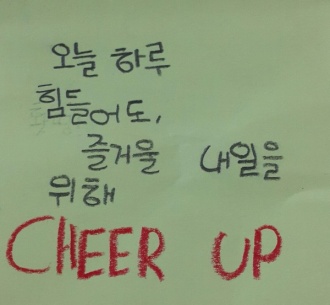 오늘 하루
힘들어도,
즐거울 내일을
위해
CHEER UP